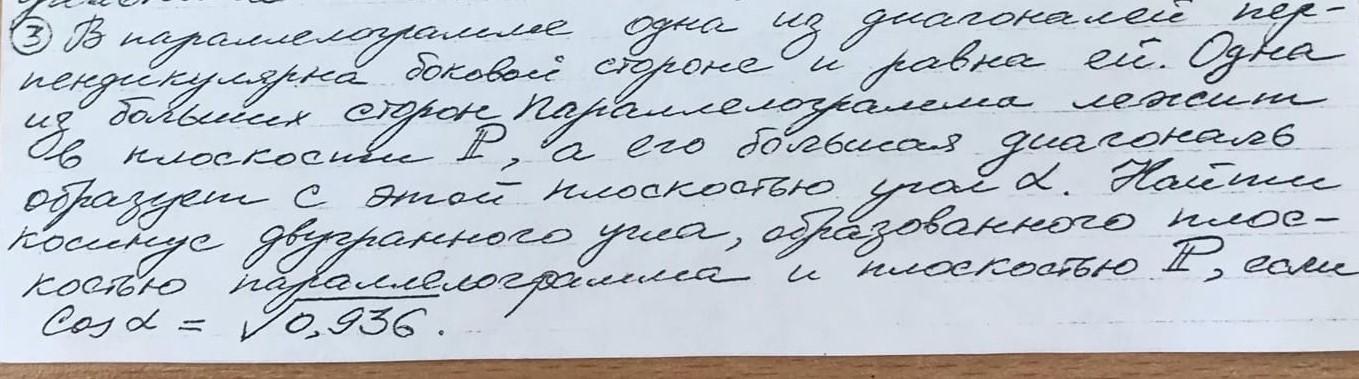 ③ В параллелограмме одна из диагоналей пер-
пендикулярна боковой стороне и равна ей. Одна
из больших сторон параллелограмма лежит
в плоскости P, а его большая диагональ
образует с этой плоскостью угол α. Найти
косинус двугранного угла, образованного плос-
костью параллелограмма и плоскостью P, если
Cos α = √0,936.